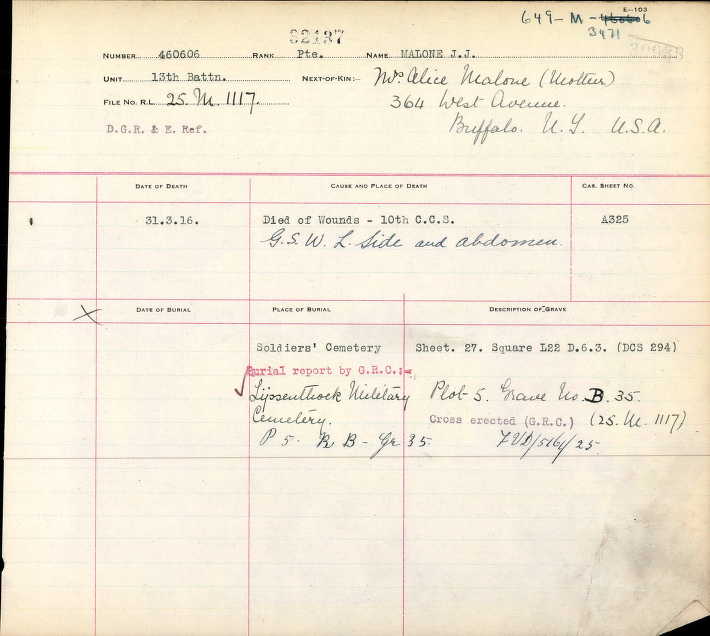 E-103
649-M-46066
3971
62137
NUMBER 460606 RANK Pte. NAME MALONE J.J.
UNIT 13th Battn. NEXT-OF-KIN:- Mrs Alice Malone (Mother)
FILE NO. R.L. 25. M. 1117. 364 West Avenue.
D.G.R. & E. Ref. Buffalo. N.Y. U.S.A.
DATE OF DEATH CAUSE AND PLACE OF DEATH CAS. SHEET NO.
31.3.16. Died of Wounds - 10th C.C.S. A325
G.S.W. L. Side and abdomen.
DATE OF BURIAL PLACE OF BURIAL DESCRIPTION OF GRAVE
Soldiers' Cemetery Sheet. 27. Square L22 D.6.3. (DCS 294)
Burial report by G.R.C.:-
Lijssenthoek Military Plot 5. Grave No. B. 35.
Cemetery. Cross erected (G.R.C.) (25. M. 1117)
P 5. R B - Gr 35